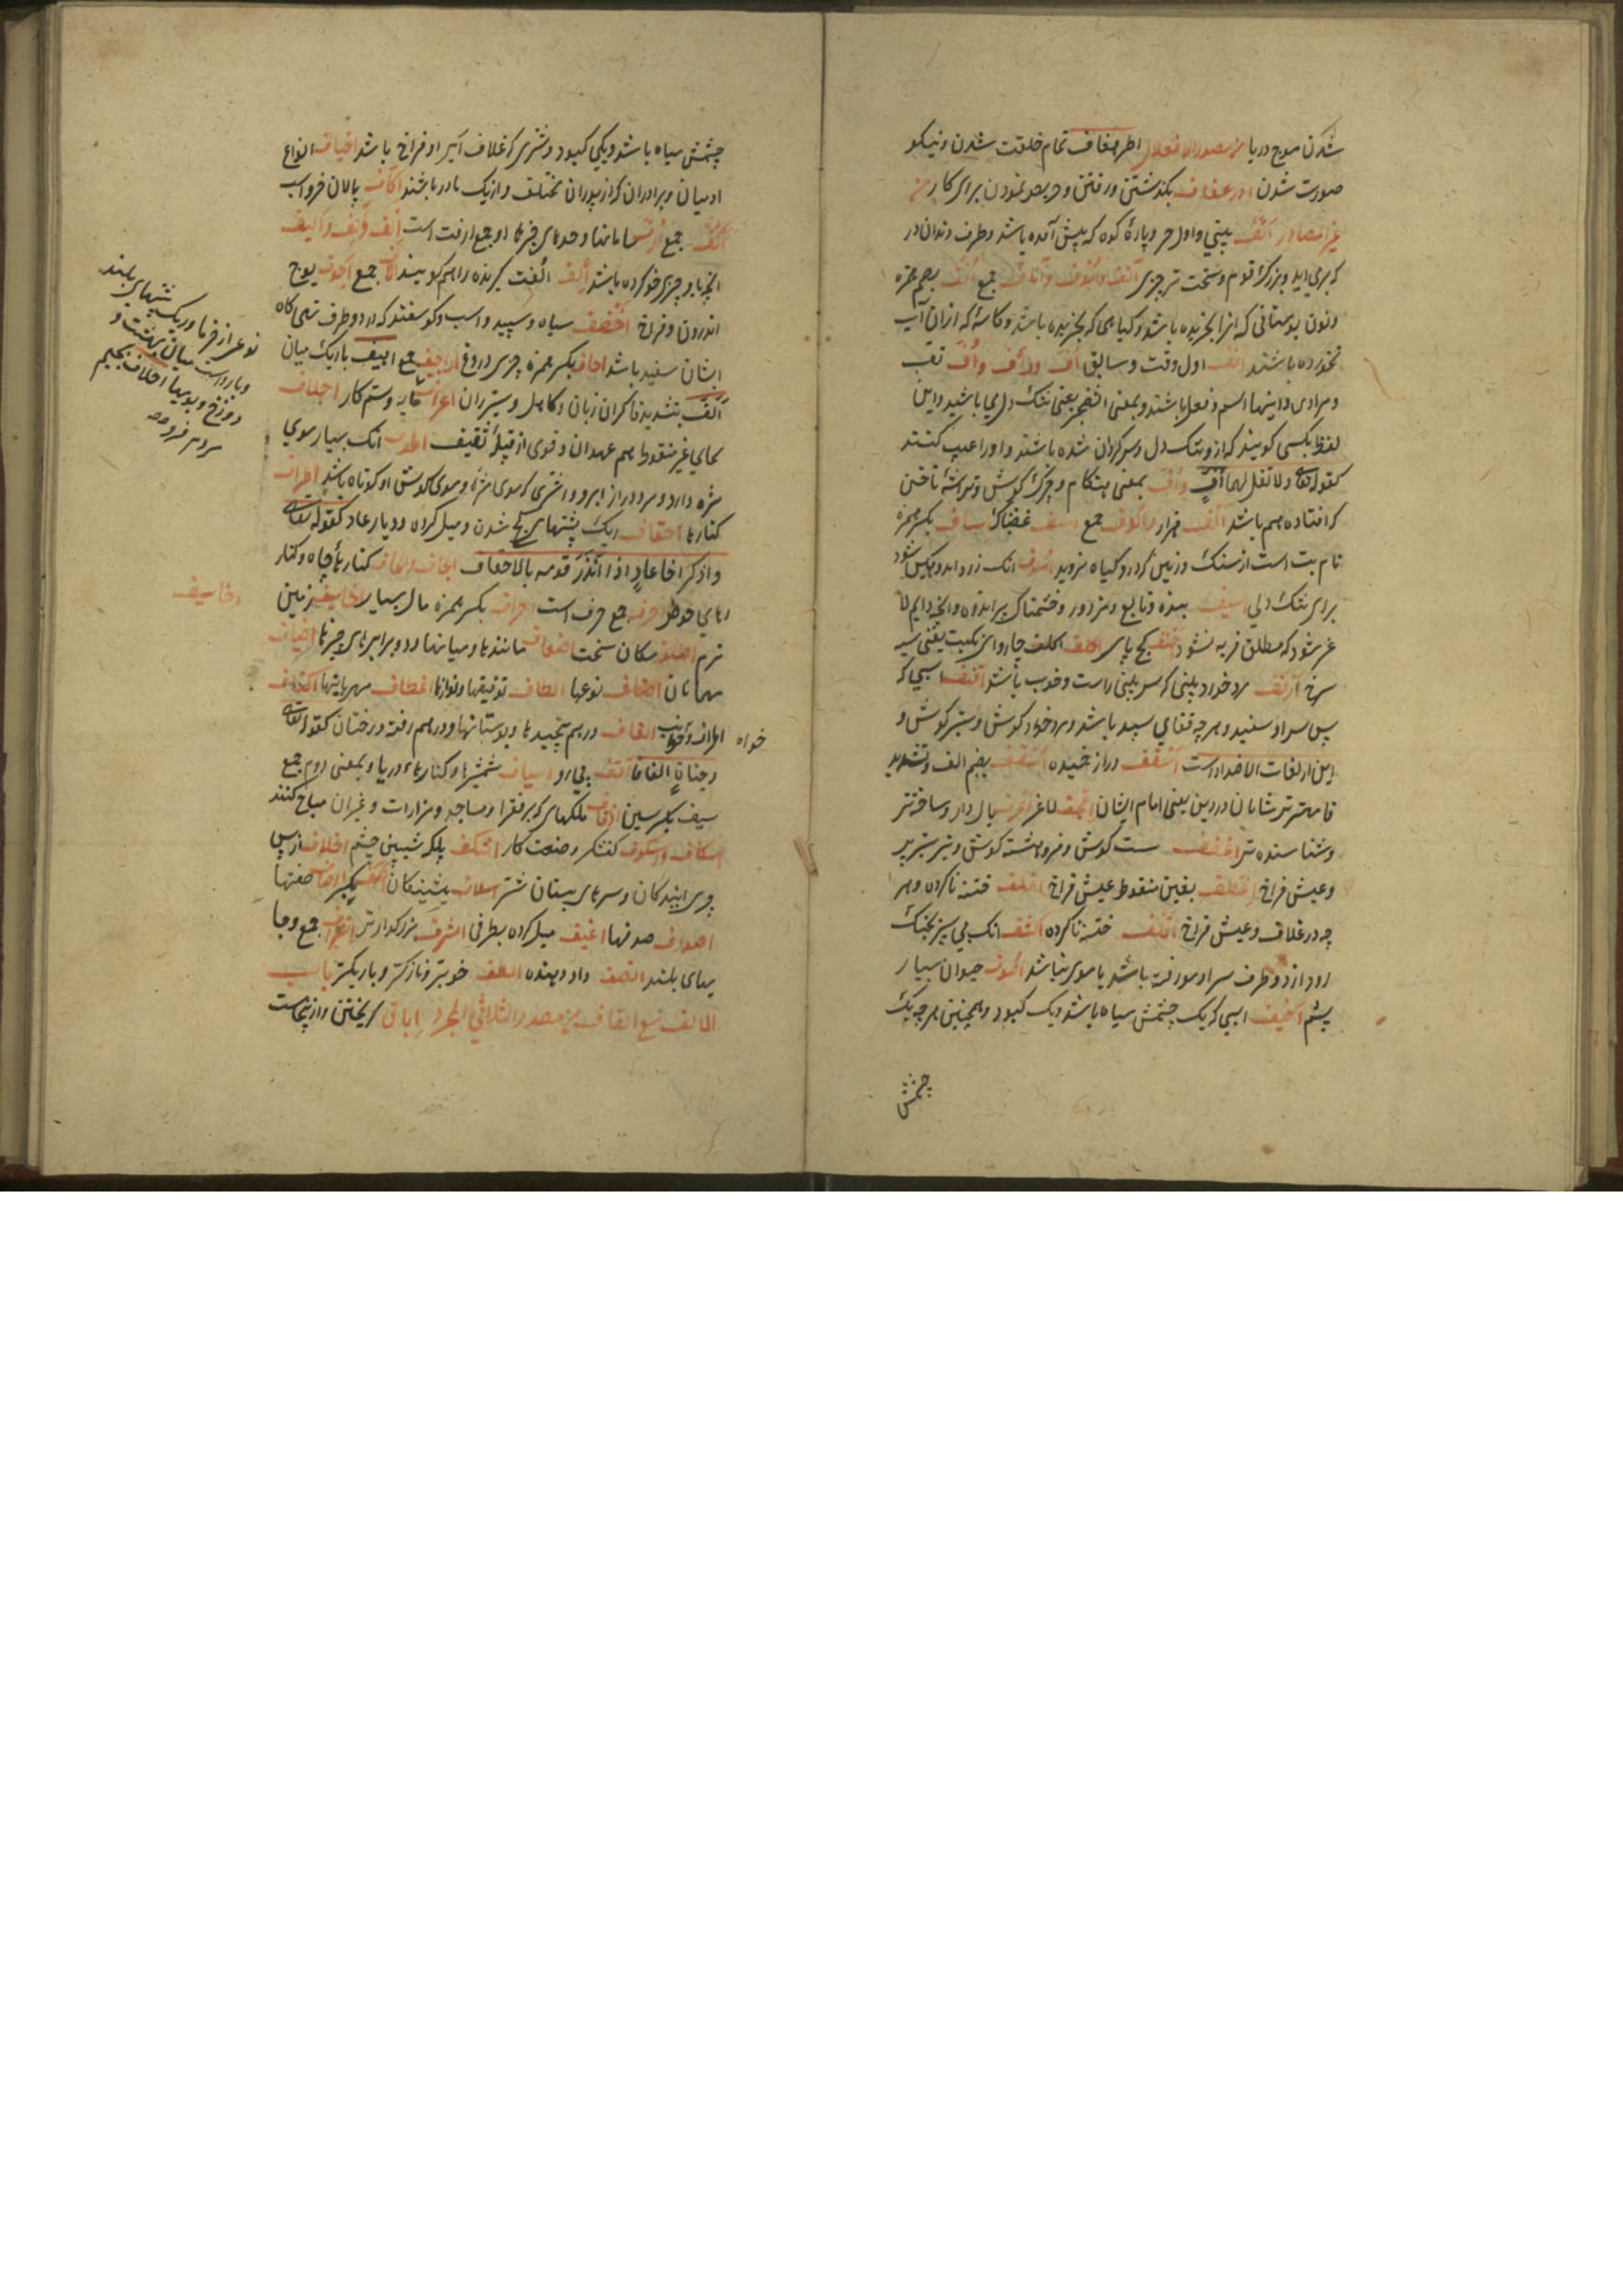 شدن موج دریا من مصدر الافعلال اطرهفاف تمام خلقت شدن و نیکو
صورت شدن ادرعفاف بگذشتن و رفتن و حریص نمودن برای کار من
غیر المصادر انف بینی و اول هر و پارۀ کوه که پیش آمده باشد و طرف دندان در
که بری اید و بزرگ قوم و سخت تر چیزی آنف و انوف و آناف جمع انف بضم همزه
و نون بوستانی که انرا نچریده باشد و کیاهی که نچریده باشد و کاسۀ که ازان آب
نخورده باشند انف اول وقت و سابق اف و اف و اف تف
و مرادی و اینها اسم فعل باشند و بمعنی اتضجر یعنی تنک دلی باشید و این
لفظ بکسی کویند که ازو تنک دل و سرکردان شده باشند و اورا عیب کنند
کقوله تعالی ولا تقل لهما أف و اف بمعنی هنکام و چرک کوش و تراشۀ ناخن
که افتاده هم باشد الف هزار و الوف جمع اسف غضبناک اساف بکسر همزه
نام بت است از سنک و زمین که درو کیاه نروید اسوف انک زود اندوهکین شود
برای تنک دلی اسیف بنده و تابع و مزدور و خشمناک بر اندوه و انچه دایم لا
غر شود که مطلق فربه نشود احنف کج پای اکلف چاروای کمیت یعنی سیه
سرخ آرنف مرد خورد بینی که سر بینی راست و خوب باشد اقنف اسپی که
پس سر او سفید و هر چه قفای سپید باشد و مرد خورد کوش و بستر کوش و
این از لغات الاضداد است اسقف دراز خمیده اسقف بضم الف و تشدید
فا مهتر ترسایان در دین یعنی امام ایشان اعجف لاغر اعرف یال دار و ساخته تر
و شناسنده تر اغضف سست کوش و فروهشته کوش و تیر ستبر پر
و عیش فراخ بغین منقوط عیش فراخ اقلف ختنه ناکرده و هر
چه در غلاف و عیش فراخ اقلف ختنه ناکرده اکشف انک بی سپر بجنک
رود از دو طرف سر او مو رفته باشد یا موی نباشد اصوف حیوان بسیار
پشم اخیف اسپی که یک چشمش سیاه باشد و یک کبود و همچنین هر چه یک
چشمش
چشمش سیاه باشد و یکی کبود و شتری که غلاف ایر او فراخ باشد اخیاف انواع
ادمیان و برادران که از پدران مختلف و از یک مادر باشند اکاف پالان خر و اسب
اکف جمع ارف سامانها و حدهای چیزها و جمع ارفت است الف و الیف
انچه با و چیزی خو کرده باشد الف الفت کیرنده را هم کویند الاف جمع اجوف پوچ
اندرون و فراخ اخصف سیاه و سپید و اسب و کوسفند که از دو طرف تهی کاه
ایشان سفید باشد بکسر همزه چیزی دروغ اراجیف جمع اهیف باریک میان
الف بتشدید فا کران زبان و کاهل و ستبر ران جافیه و ستم کار احلاف
بحای غیر منقوط هم عهدان و قوی از قبیلۀ ثقیف اهدب انک بسیار موی
مژه دارد و مرد دراز ابرو و اشتری که موی مژها و موی کوش او کوتاه باشد
کنارها احقاف ریک پشتهای کج شدن و میل کرده و دیار عاد کقوله تعالی
و اذکر اخا عاد اذ انذر قومه بالاحقاف الجاف و کنارهای چاه و کنار
های حوض جمع حرف است احراف بکسر همزه مال بسیار اخاسیف زمین
نرم مکان سخت اضعاف مانندها و میانها و دو برابرهای چیزها اضیاف
مهمانان اصناف نوعها الطاف توفیقها و نوازها اعطاف مهربانیها اکناف
اطراف و جوانب الفاف در هم پیچیدها و بوستانها و در هم رفته درختان کقوله تعالی
و جنات الفافا اسیاف شمشیرها و کنارهای دریا و بمعنی دوم جمع
سیف بکسر سین اوقاف ملکهای که بر فقرا و مساجد و مزارات و غیر ان مباح کنند
اسکاف و اسکوف کفشکر و صنعت کار اشکف پلک شیبین چشم اخلاف از پس
چیزی ایندکان و سرهای پستان شتر اسلاف پیشینکان اوصاف صفتها
اصداف صدفها اغیف میل کرده بطرفی اشرف بزرکوارتر اعراف جمع و جا
یهای بلند انصف داد دهنده الطف خوبتر و نازکتر و باریکتر باب
الالف مع القاف من مصدر الثلاثی المجرد اباق کریختن و از اینجاست
نوعی از خرما و ریک پشتهای بلند
و باروست میان بهشت و
دوزخ و بویها احلاف بجیم
اخاسیف
خواه